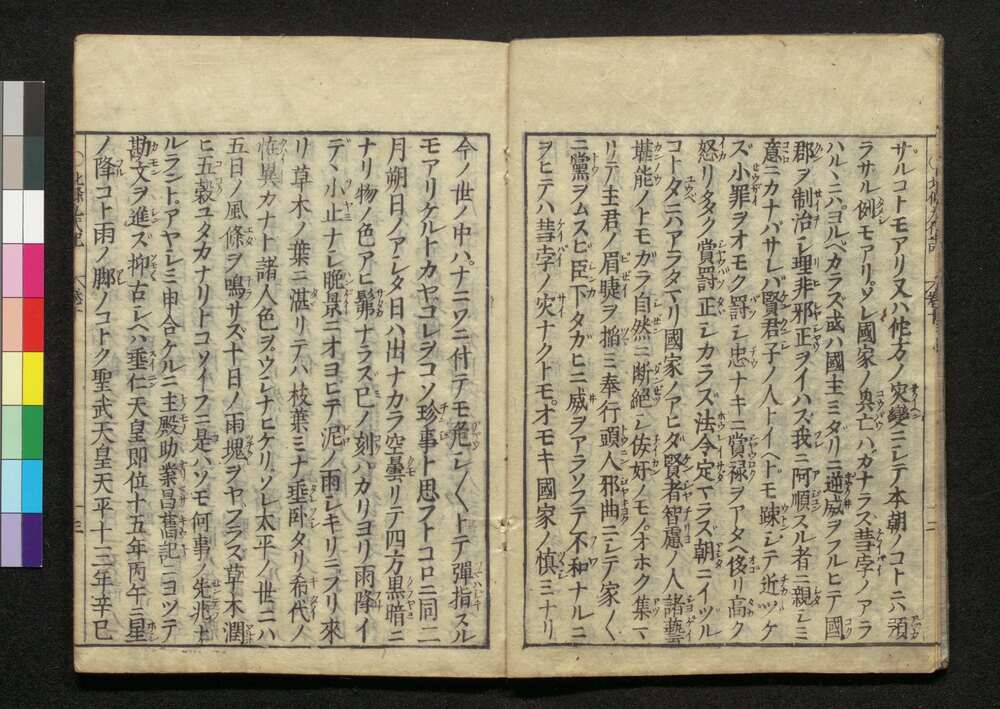 サルコトモアリ又ハ他方ノ災變ニシテ本朝ノコトニ預
ラサル例モアリソレ國家ノ興亡ハカナラス彗孛ノアラ
ハルヽニハヨルベカラズ或ハ國主ミダリニ逆威ヲフルヒテ國
郡ヲ制治シ理非邪正ヲイハス我ニ阿順スル者ニ親シミ
意ニカナハサレバ賢君子ノ人トイヘドモ踈シテ近ツケ
ズ小罪ヲオモク罸シ忠ナキニ賞禄ヲアタヘ侈リ高ク
怒リタクク賞罸正シカラズ法令定マラズ朝ニイツル
コトタニハアラタマリ國家ノアヒダ賢者智慮ノ人諸藝
堪能ノトモガラ自然ニ断絶シ佞奸ノモノオホク集マ
リテ主君ノ眉睫ヲ搯ミ奉行頭人邪曲ニシテ家〱
ニ黨ヲムスビ臣下タガヒニ威ヲアラソフテ不和ナルニ
ヲヒテハ彗孛ノ災ナクトモオモキ國家ノ慎ミナリ
今ノ世ノ中ハナニワニ付テモ危シ〱トテ彈指スル
モアリケルトカヤコレヲコソ珍事ト思フトコロニ同二
月朔日ノアシタ日ハ出ナカラ空曇リテ四方黒暗ニ
ナリ物ノ色アヒ鮮ナラス巳ノ刻バカリヨリ雨降イ
デヽ小止ナシ晩景ニオヨビテ泥ノ雨シキリニフリ來
リ草木ノ葉ニ湛リテハ枝葉ミナ垂卧タリ希代ノ
恠異カナト諸人色ヲウシナヒケリソレ太平ノ世ニハ
五日ノ風條ヲ鳴サズ十日ノ雨塊ヲヤブラス草木潤
ヒ五穀ユタカナリトコソイフニ是ハソモ何事ノ先兆ナ
ルラントアヤシミ申合ケルニ主殿助業昌舊記ニヨツテ
勘文ヲ進ズ抑古シヘハ垂仁天皇即位十五年丙午ニ星
ノ降コト雨ノ脚ノコトク聖武天皇天平十三年辛巳